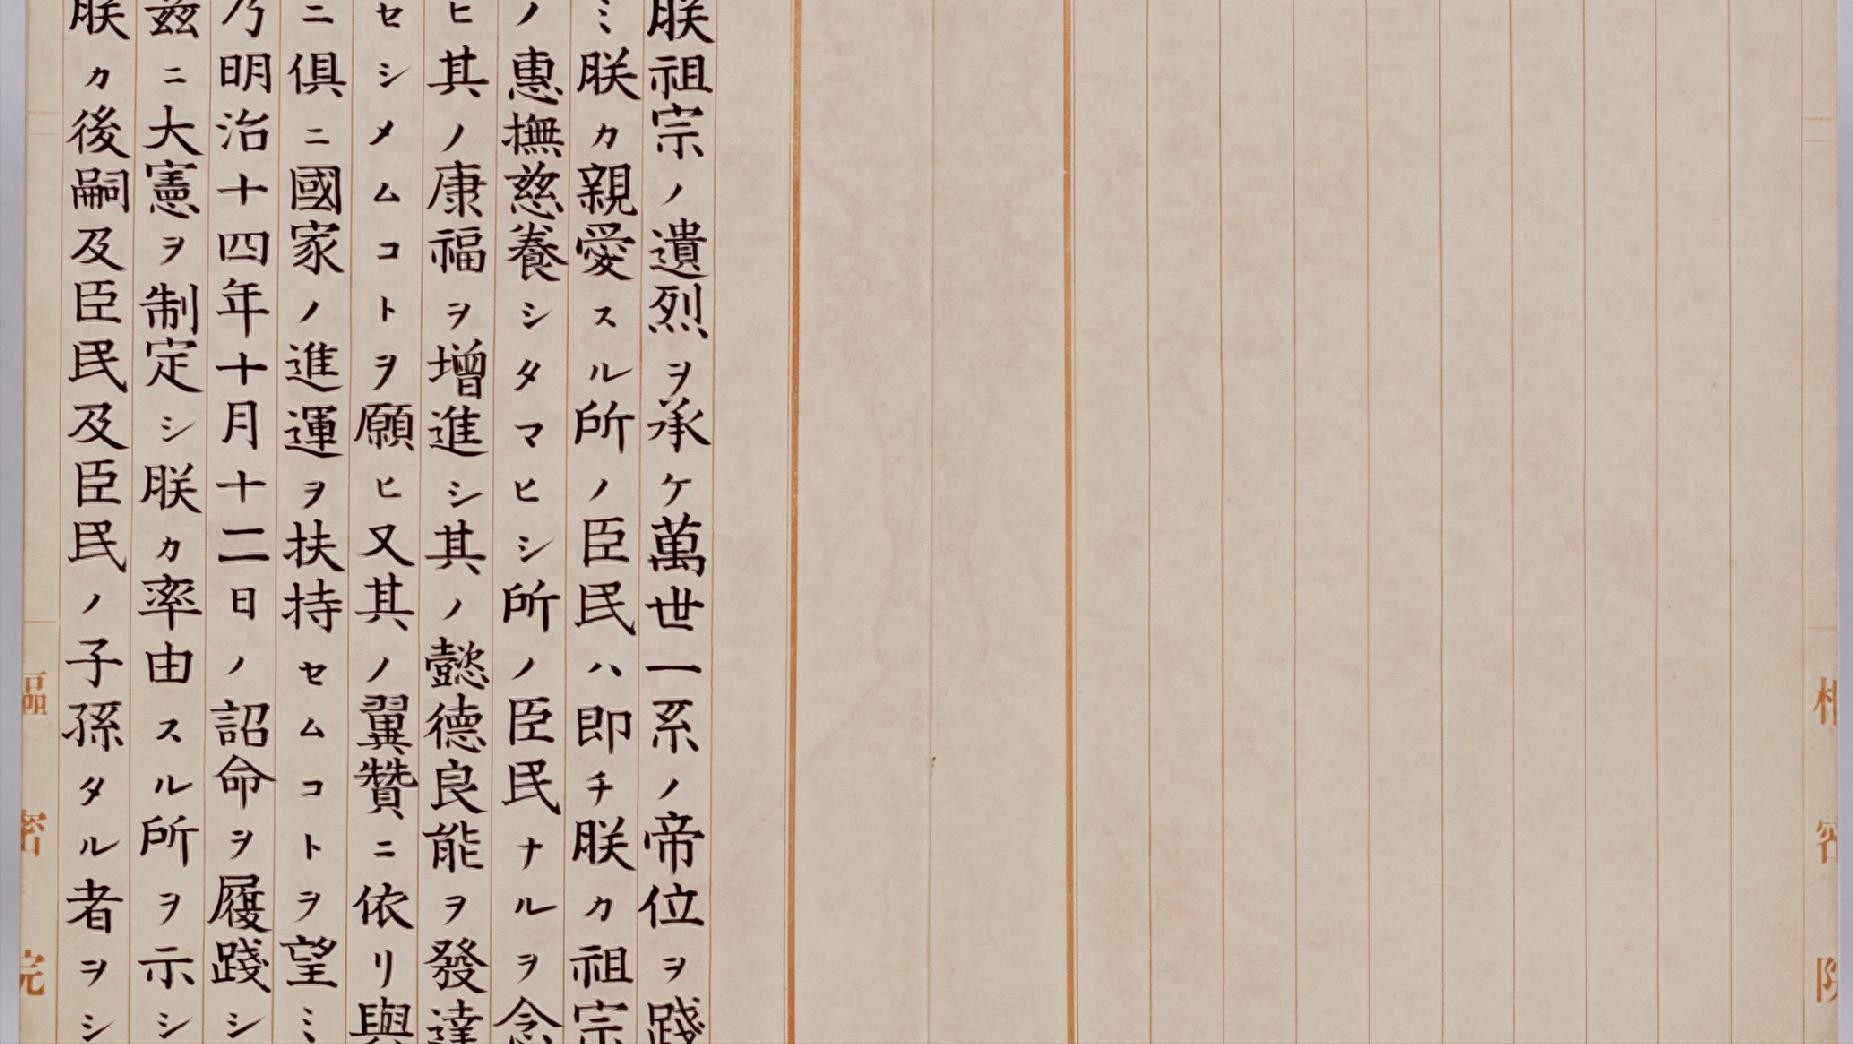 朕祖宗ノ遺烈ヲ承ケ萬世一系ノ帝位ヲ踐
ミ朕カ親愛スル所ノ臣民ハ即チ朕カ祖宗
ノ惠撫慈養シタマヒシ所ノ臣民ナルヲ念
ヒ其ノ康福ヲ增進シ其ノ懿德良能ヲ發達
セシメムコトヲ願ヒ又其ノ翼贊ニ依リ與
ニ俱ニ國家ノ進運ヲ扶持セムコトヲ望ミ
乃明治十四年十月十二日ノ詔命ヲ履踐シ
玆ニ大憲ヲ制定シ朕カ率由スル所ヲ示シ
朕カ後嗣及臣民及臣民ノ子孫タル者ヲシ
樞密院
樞密院